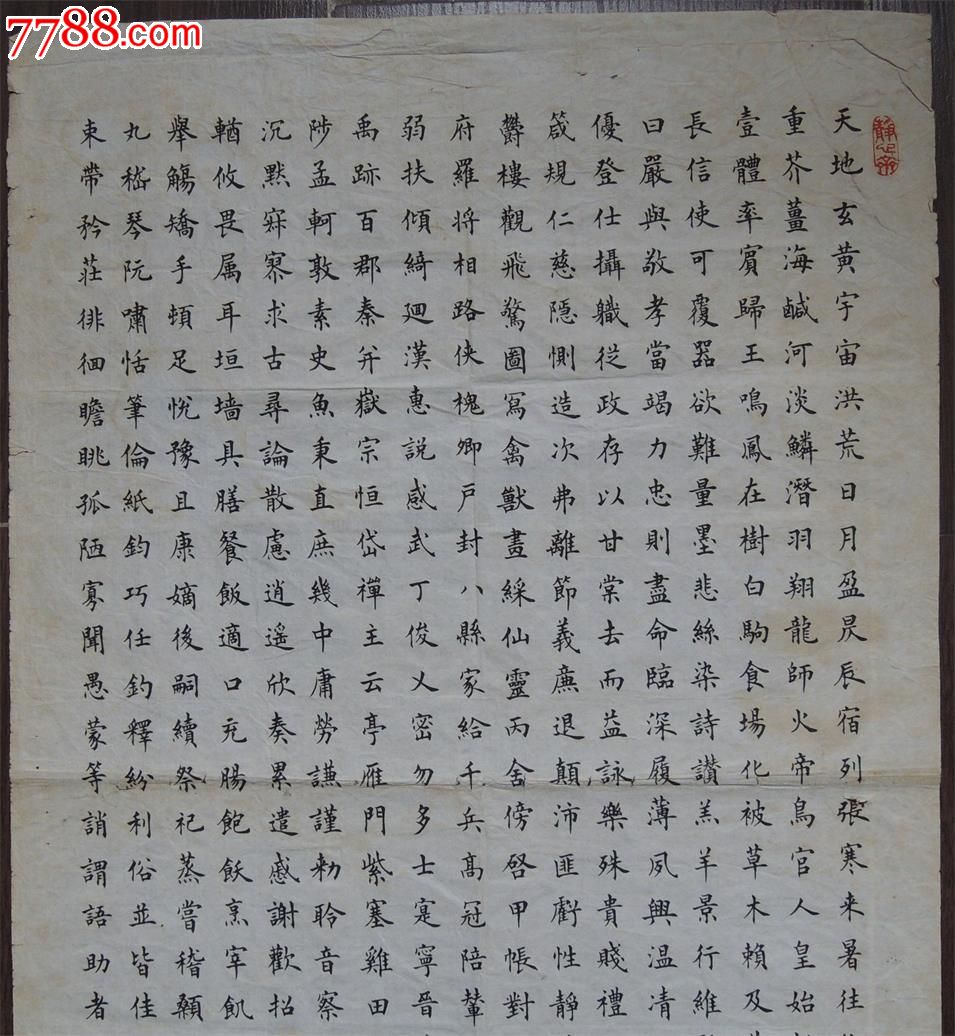 7788.com
天地玄黃宇宙洪荒日月盈昃辰宿列張寒来暑往
重芥薑海鹹河淡鱗潛羽翔龍師火帝鳥官人皇始
壹體率賓歸王鳴鳳在樹白駒食場化被草木賴及
長信使可覆器欲難量墨悲絲染詩讚羔羊景行維
曰嚴與敬孝當竭力忠則盡命臨深履薄夙興温凊
優登仕攝職從政存以甘棠去而益詠樂殊貴賤禮
箴規仁慈隱惻造次弗離節義廉退顛沛匪虧性靜
鬱樓觀飛驚圖寫禽獸畫綵仙靈丙舍傍啓甲帳對
府羅将相路俠槐卿戶封八縣家給千兵高冠陪輦
弱扶傾綺廻漢惠說感武丁俊乂密勿多士寔寧晉
禹跡百郡秦并嶽宗恒岱禪主云亭雁門紫塞雞田
陟孟軻敦素史魚秉直庶幾中庸勞謙謹勅聆音察
沉默寂寥求古尋論散慮逍遥欣奏累遣慼謝歡招
輶攸畏属耳垣墙具膳餐飯適口充腸飽飫烹宰飢
舉觴矯手頓足悅豫且康嫡後嗣續祭祀蒸嘗稽顙
丸嵇琴阮嘯恬筆倫紙鈞巧任釣釋紛利俗並皆佳
束帶矜莊徘徊瞻眺孤陋寡聞愚蒙等誚謂語助者